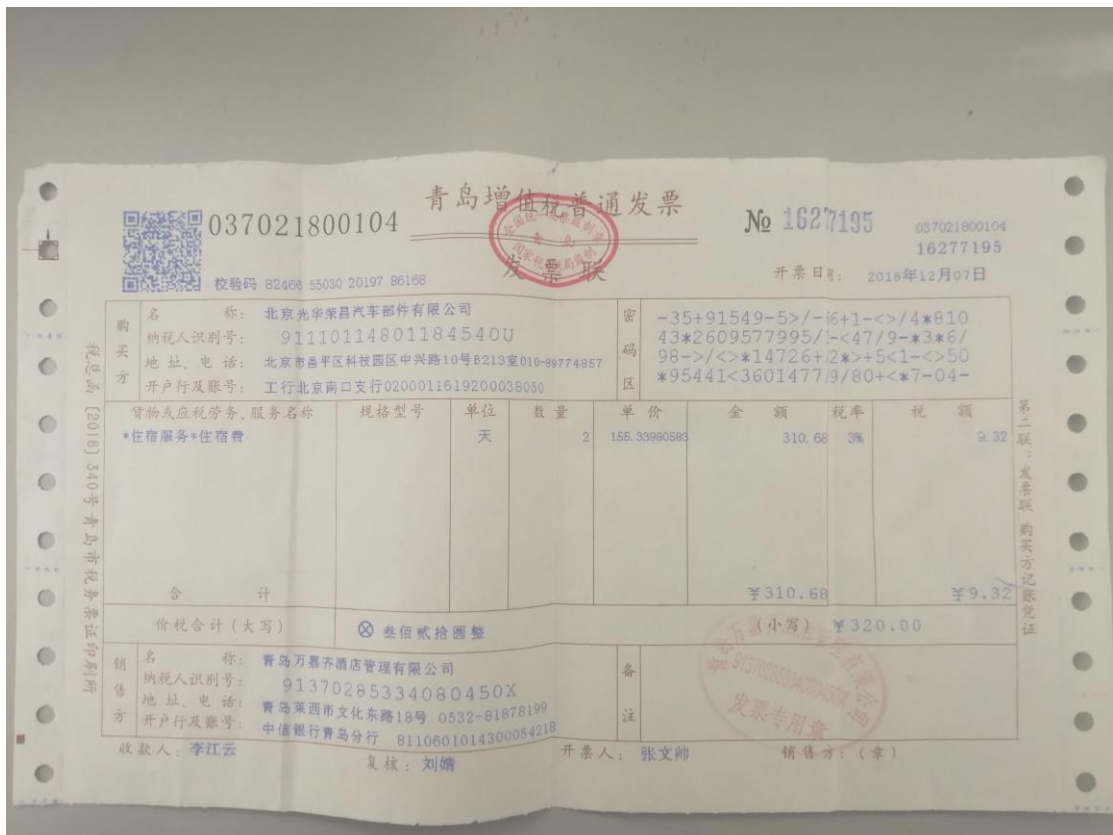 青岛增值税普通发票
发票联
全国统一发票监制章
青岛
国家税务总局监制
037021800104
№ 16277195
037021800104
16277195
校验码 82466 55030 20197 86168
开票日期: 2018年12月07日
购买方
名称: 北京光华荣昌汽车部件有限公司
纳税人识别号: 91110114801184540U
地址、电话: 北京市昌平区科技园区中兴路10号B213室010-89774857
开户行及账号: 工行北京南口支行0200011619200038050
密码区
-35+91549-5>/-66+1-<>/4*810
43*2609577995/1-<47/9-*3*6/
98->/<>*14726+/2*>+5<1-<>50
*95441<3601477/9/80+<*7-04-
货物或应税劳务、服务名称 规格型号 单位 数量 单价 金额 税率 税额
*住宿服务*住宿费 天 2 155.33980583 310.68 3% 9.32
合计 ¥310.68 ¥9.32
价税合计(大写) ⊗ 叁佰贰拾圆整 (小写) ¥320.00
销售方
名称: 青岛万嘉齐酒店管理有限公司
纳税人识别号: 91370285334080450X
地址、电话: 青岛莱西市文化东路18号 0532-81878199
开户行及账号: 中信银行青岛分行 8110601014300054218
备注
收款人: 李江云 复核: 刘婧 开票人: 张文帅 销售方: (章)
91370285334080450X
发票专用章
税总函 [2018] 340号青岛市税务票证印刷所
第二联: 发票联 购买方记账凭证